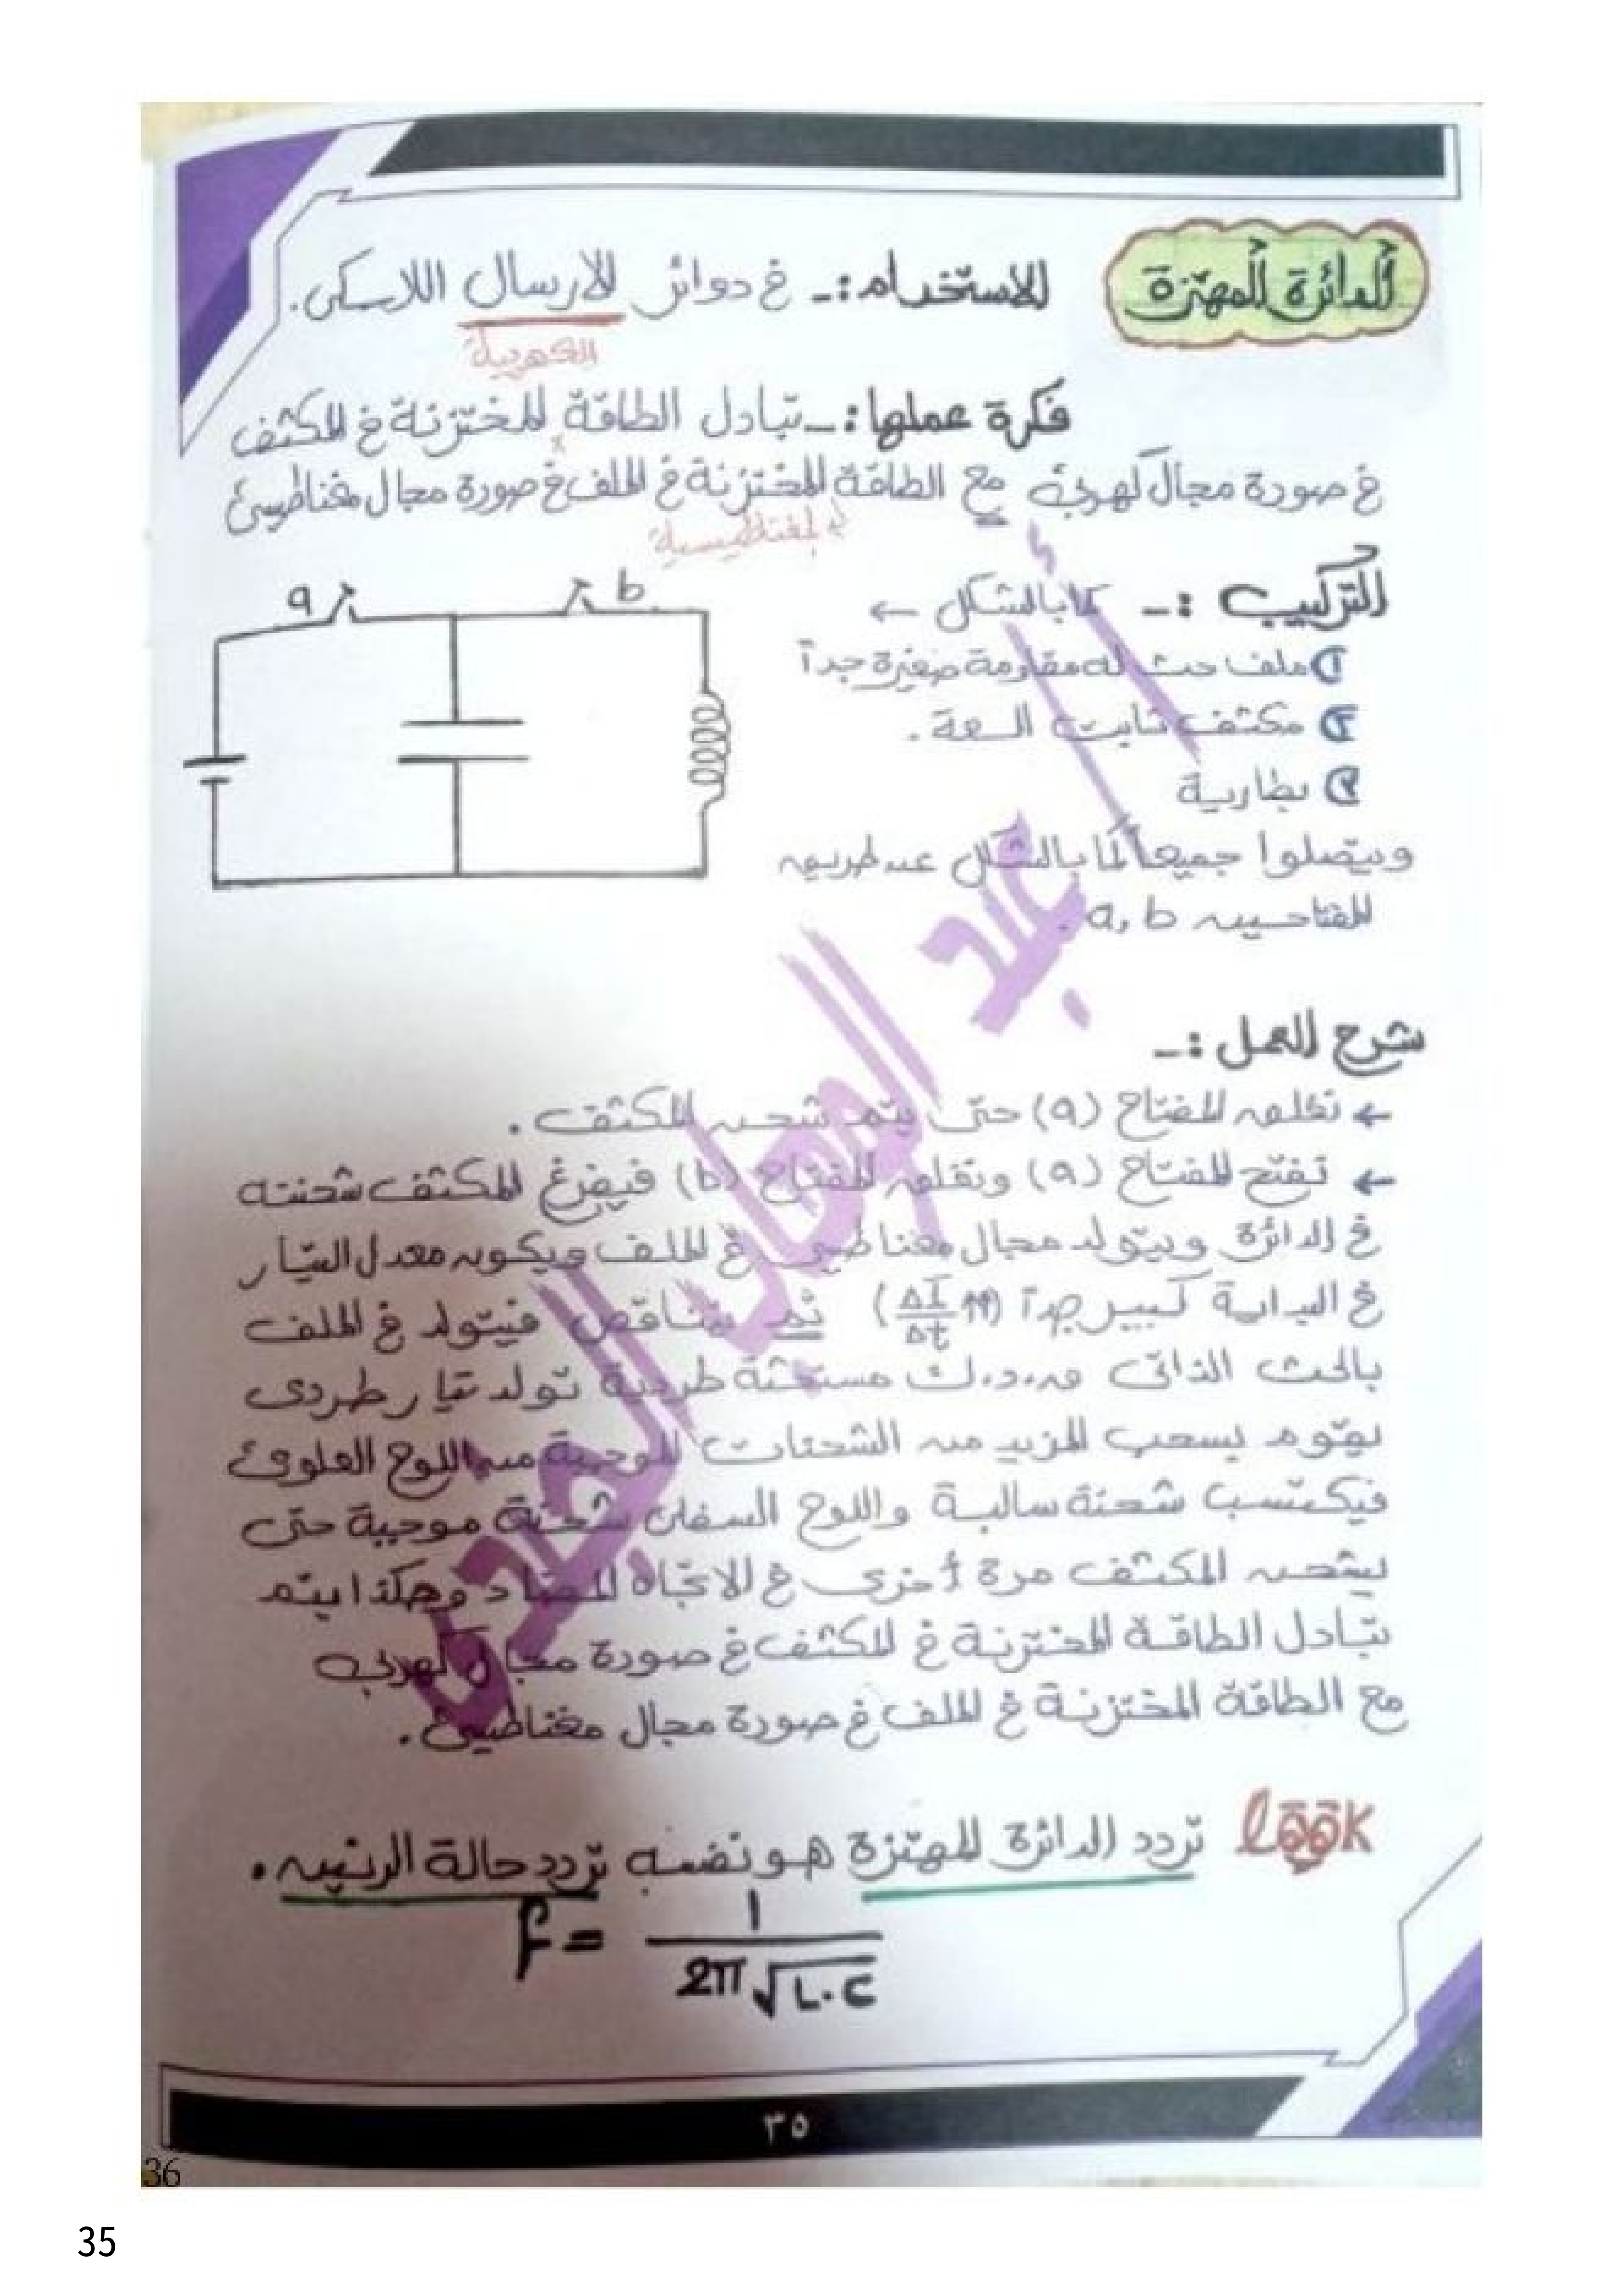 الدائرة المهتزة
الاستخدام :- في دوائر الإرسال اللاسلكي .
الكهربية
فكرة عملها :- تبادل الطاقة المختزنة في المكثف
في صورة مجال كهربي مع الطاقة المختزنة في الملف في صورة مجال مغناطيسي
المغناطيسية
التركيب :- كما بالشكل ←
① ملف حث له مقاومة صغيرة جداً
② مكثف ثابت السعة .
③ بطارية
ويتصلوا جميعاً كما بالشكل عن طريق
المفتاحين a , b .
a b
شرح العمل :-
← نغلق المفتاح (a) حتى يتم شحن المكثف .
← نفتح المفتاح (a) ونغلق المفتاح (b) فيفرغ المكثف شحنته
في الدائرة ويتولد مجال مغناطيسي في الملف ويكون معدل التيار
في البداية كبير جداً (↑↑ ΔI/Δt) ثم يتناقص فيتولد في الملف
بالحث الذاتي ق.د.ك مستحثة طردية تولد تيار طردي
يقوم بسحب المزيد من الشحنات الموجبة من اللوح العلوي
فيكتسب شحنة سالبة واللوح السفلي شحنة موجبة حتى
يشحن المكثف مرة أخرى في الاتجاه المضاد وهكذا يتم
تبادل الطاقة المختزنة في المكثف في صورة مجال كهربي
مع الطاقة المختزنة في الملف في صورة مجال مغناطيسي .
look تردد الدائرة المهتزة هو نفسه تردد حالة الرنين .
f = 1 / 2π√L.C
٣٥
36
35